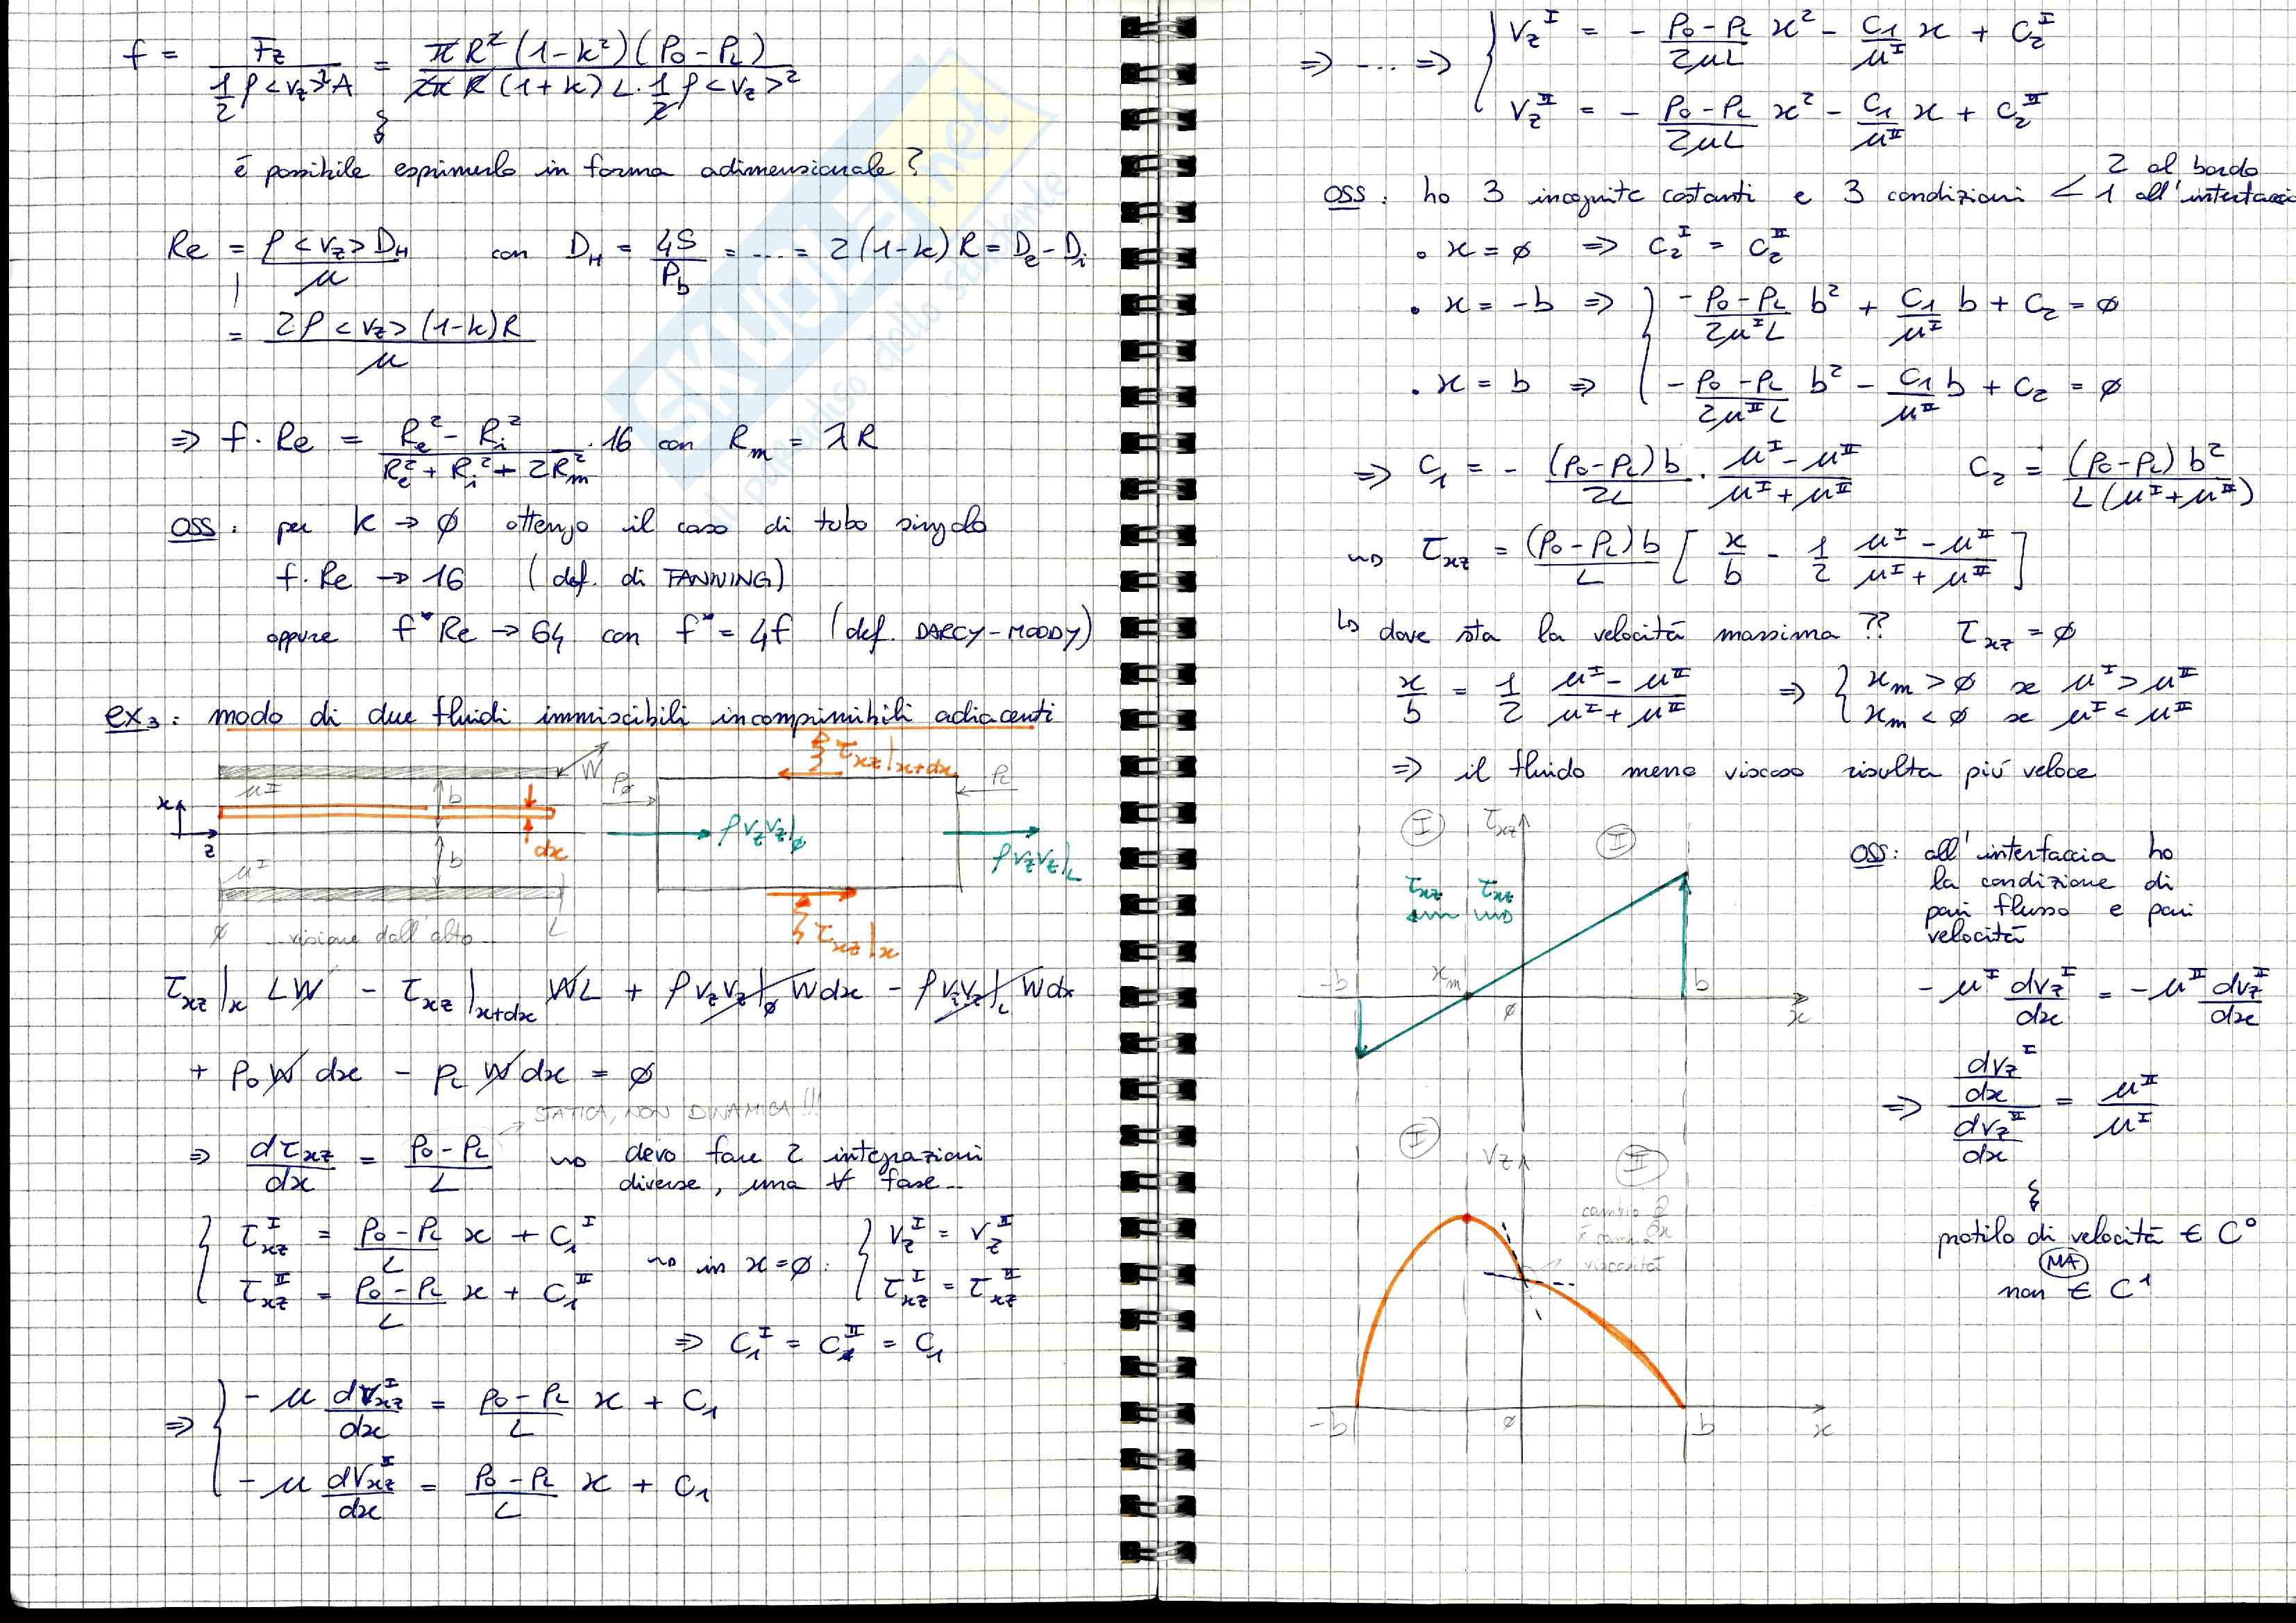 f = Fz / (1/2 ρ <vz>² A) = π R² (1-k²) (P0 - PL) / (2π R (1+k) L · 1/2 ρ <vz>²)
é possibile esprimerlo in forma adimensionale?
Re = ρ <vz> DH / μ con DH = 4S / Pb = .... = 2 (1-k) R = De - Di
= 2ρ <vz> (1-k) R / μ
⇒ f · Re = (Re² - Ri²) / (Re² + Ri² + 2Rm²) · 16 con Rm = λR
OSS: per k → ∅ ottengo il caso di tubo singolo
f · Re → 16 (def. di FANNING)
oppure f* Re → 64 con f* = 4f (def. DARCY-MOODY)
ex3: modo di due fluidi immiscibili incomprimibili adiacenti
W
μᴵ
b
x
z
dx
b
μᴵ
∅ visione dall'alto L
τxz|x+dx
P∅
PL
ρ vz vz|∅
ρ vz vz|L
τxz|x
τxz|x LW - τxz|x+dx WL + ρ vz vz|∅ W dx - ρ vz vz|L W dx
+ P0 W dx - PL W dx = ∅
STATICA, NON DINAMICA!!!
⇒ dτxz/dx = (P0 - PL)/L devo fare 2 integrazioni
diverse, una ∀ fase..
τxzᴵ = (P0 - PL)/L x + C1ᴵ
τxzᴵᴵ = (P0 - PL)/L x + C1ᴵᴵ
in x = ∅ : vzᴵ = vzᴵᴵ
τxzᴵ = τxzᴵᴵ
⇒ C1ᴵ = C1ᴵᴵ = C1
⇒ - μ dvxzᴵ/dx = (P0 - PL)/L x + C1
- μ dvxzᴵᴵ/dx = (P0 - PL)/L x + C1
⇒ .... ⇒ vzᴵ = - (P0 - PL)/(2μL) x² - C1/μᴵ x + C2ᴵ
vzᴵᴵ = - (P0 - PL)/(2μL) x² - C1/μᴵᴵ x + C2ᴵᴵ
OSS: ho 3 incognite costanti e 3 condizioni < 2 al bordo
1 all'interfaccia
• x = ∅ ⇒ C2ᴵ = C2ᴵᴵ
• x = -b ⇒ - (P0 - PL)/(2μᴵL) b² + C1/μᴵ b + C2 = ∅
• x = b ⇒ - (P0 - PL)/(2μᴵᴵL) b² - C1/μᴵᴵ b + C2 = ∅
⇒ C1 = - (P0 - PL) b/(2L) · (μᴵ - μᴵᴵ)/(μᴵ + μᴵᴵ) C2 = (P0 - PL) b² / (L (μᴵ + μᴵᴵ))
τxz = (P0 - PL) b/L [ x/b - 1/2 (μᴵ - μᴵᴵ)/(μᴵ + μᴵᴵ) ]
dove sta la velocitá massima ?? τxz = ∅
x/b = 1/2 (μᴵ - μᴵᴵ)/(μᴵ + μᴵᴵ) ⇒ xm > ∅ se μᴵ > μᴵᴵ
xm < ∅ se μᴵ < μᴵᴵ
⇒ il fluido meno viscoso risulta piú veloce
I
τxz
I
τxz τxz
-b
xm
∅
b
x
OSS: all'interfaccia ho
la condizione di
pari flusso e pari
velocitá
- μᴵ dvzᴵ/dx = - μᴵᴵ dvzᴵ/dx
⇒ (dvzᴵ/dx) / (dvzᴵᴵ/dx) = μᴵᴵ/μᴵ
profilo di velocitá ∈ C⁰
MA
non ∈ C¹
I
vz
II
cambio
viscositá
-b
∅
b
x
SKUOLA.net
il paradiso dello studente